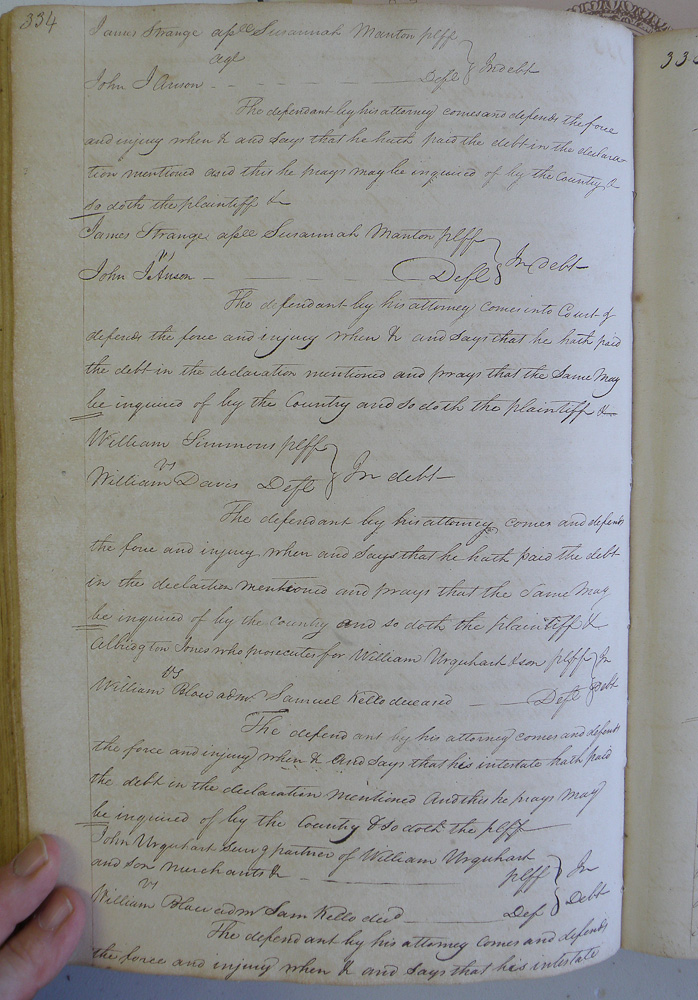 334
James Strange assee Susannah Manton plff
agt
John I Anson Deft } In debt
The defendant by his attorney comes and defends the force
and injury when & and Says that he hath paid the debt in the declara
tion mentioned and this he prays may be inquired of by the County &
so doth the plaintiff &
James Strange assee Susannah Manton plff
vs
John I Anson Deft } In debt
The defendant by his attorney comes into Court &
defends the force and injury when & and Says that he hath paid
the debt in the declaration mentioned and prays that the Same may
be inquired of by the Country and so doth the plaintiff &
William Simmons plff
vs
William Davis Deft } In debt
The defendant by his attorney comes and defends
the force and injury when and Says that he hath paid the debt
in the declaction mentioned and prays that the Same may
be inquired of by the Country and so doth the plaintiff &
Albridgton Jones who prosecutes for William Urquhart & son plff } In
vs
William Blow admr. Samuel Kello deceased Deft } Debt
The defendant by his attorney comes and defends
the force and injury when & and Says that his intestate hath paid
the debt in the declaration mentioned And this he prays may
be inquired of by the Country & so doth the plff
John Urquhart Survg partner of William Urquhart
and son Merchants & plff } In
vs
William Blow admr Sam Kello decd Def } Debt
The defendant by his attorney comes and defends
the force and injury when & and Says that his intestate